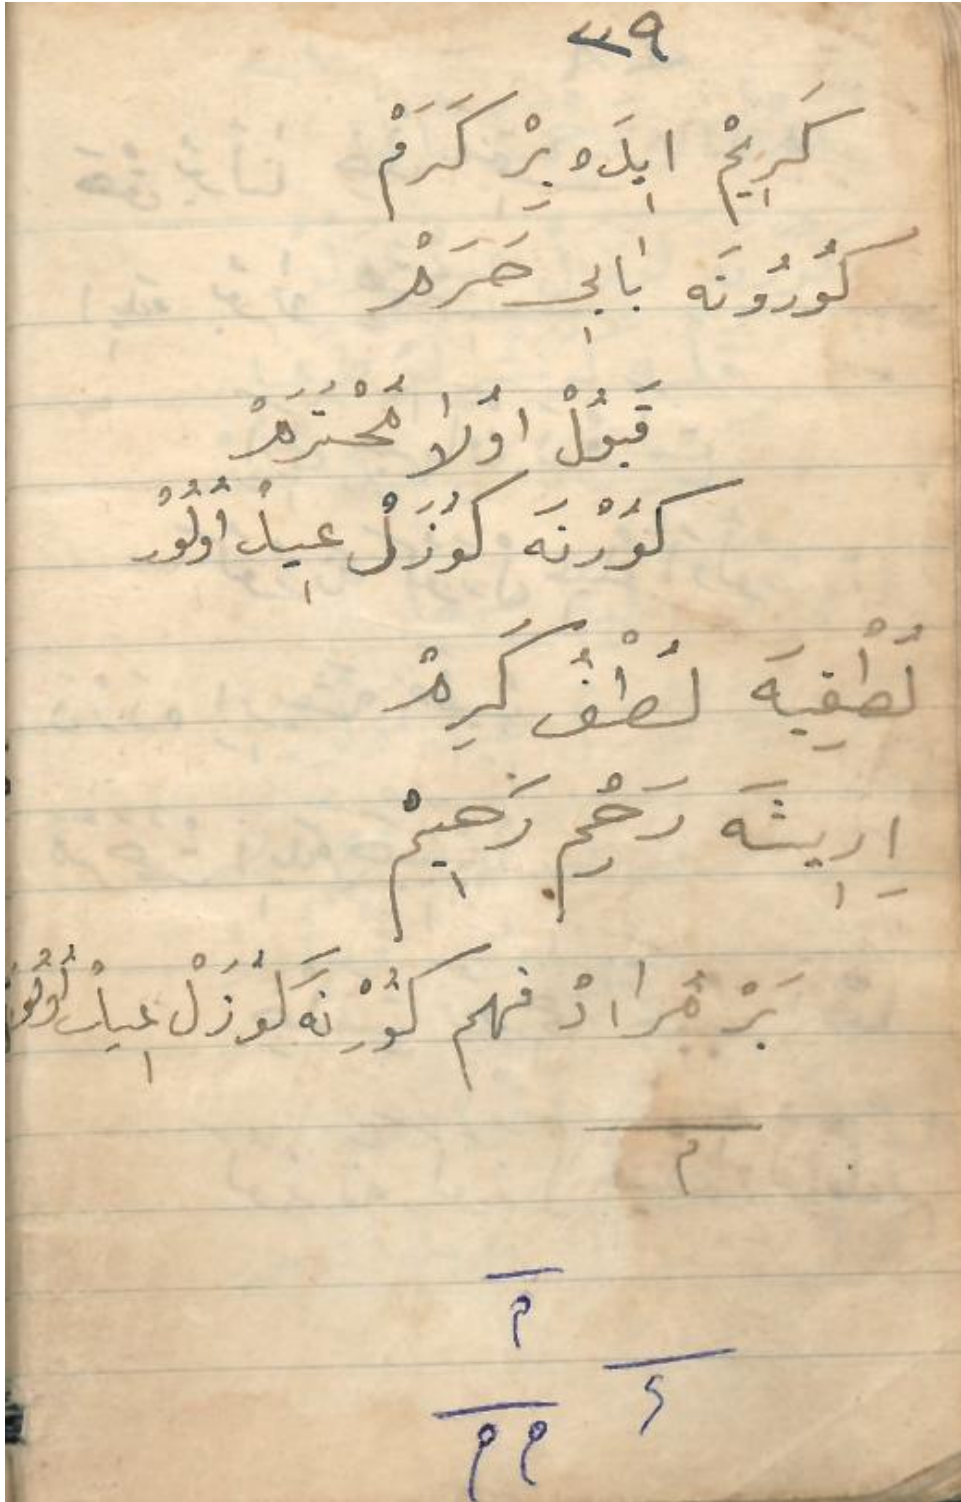 ٣٩
كَرِيمْ ايلَه بِرْ كَرَمْ
كُورُونَه بَابِ حَرَمْ
قَبُولْ اوُلا مُحْتَرَمْ
كُورْنَه كُوزَلْ عِيدْ اُولُورْ
لُطْفِيَه لُطْفُ كَرِمْ
اِرِيشَه رَحْمِ رَحِيمْ
بَرْ مُرَادْ فهم كُورِْنَه كُوزَلْ عِيدْ اُولُورْ
م
م
م م